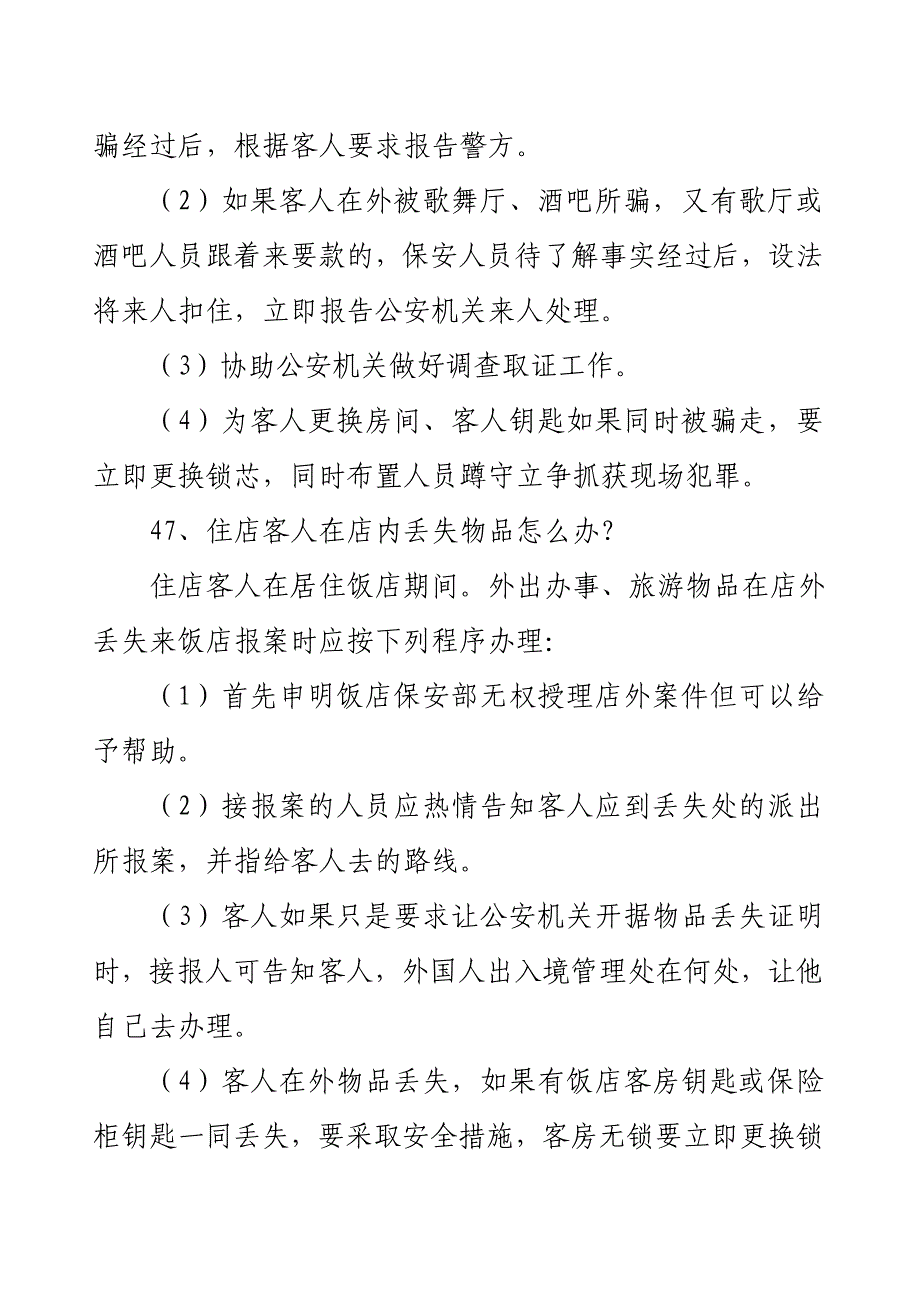 骗经过后，根据客人要求报告警方。
（2）如果客人在外被歌舞厅、酒吧所骗，又有歌厅或
酒吧人员跟着来要款的，保安人员待了解事实经过后，设法
将来人扣住，立即报告公安机关来人处理。
（3）协助公安机关做好调查取证工作。
（4）为客人更换房间、客人钥匙如果同时被骗走，要
立即更换锁芯，同时布置人员蹲守立争抓获现场犯罪。
47、住店客人在店内丢失物品怎么办？
住店客人在居住饭店期间。外出办事、旅游物品在店外
丢失来饭店报案时应按下列程序办理：
（1）首先申明饭店保安部无权授理店外案件但可以给
予帮助。
（2）接报案的人员应热情告知客人应到丢失处的派出
所报案，并指给客人去的路线。
（3）客人如果只是要求让公安机关开据物品丢失证明
时，接报人可告知客人，外国人出入境管理处在何处，让他
自己去办理。
（4）客人在外物品丢失，如果有饭店客房钥匙或保险
柜钥匙一同丢失，要采取安全措施，客房无锁要立即更换锁